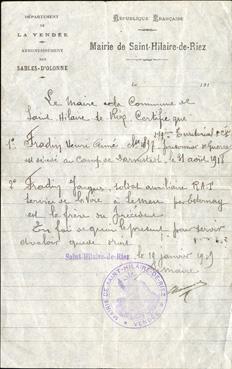 DÉPARTEMENT
DE
LA VENDÉE
ARRONDISSEMENT
DES
SABLES-D'OLONNE
RÉPUBLIQUE FRANÇAISE
Mairie de Saint-Hilaire-de-Riez
le 191
Le Maire de la Commune de
Saint Hilaire de Riez Certifie que
1° Fradin Henri Aimé prisonnier de guerre
est décédé au camp de Darmstadt le 21 août 1918
2° Fradin Jacques, soldat auxiliaire R.A.T.
service de la voie à
est le frère du précédent
En foi de quoi le présent pour servir
et valoir que de droit
Saint-Hilaire-de-Riez le 19 janvier 1919
Le maire
MAIRIE DE SAINT-HILAIRE-DE-RIEZ
VENDÉE